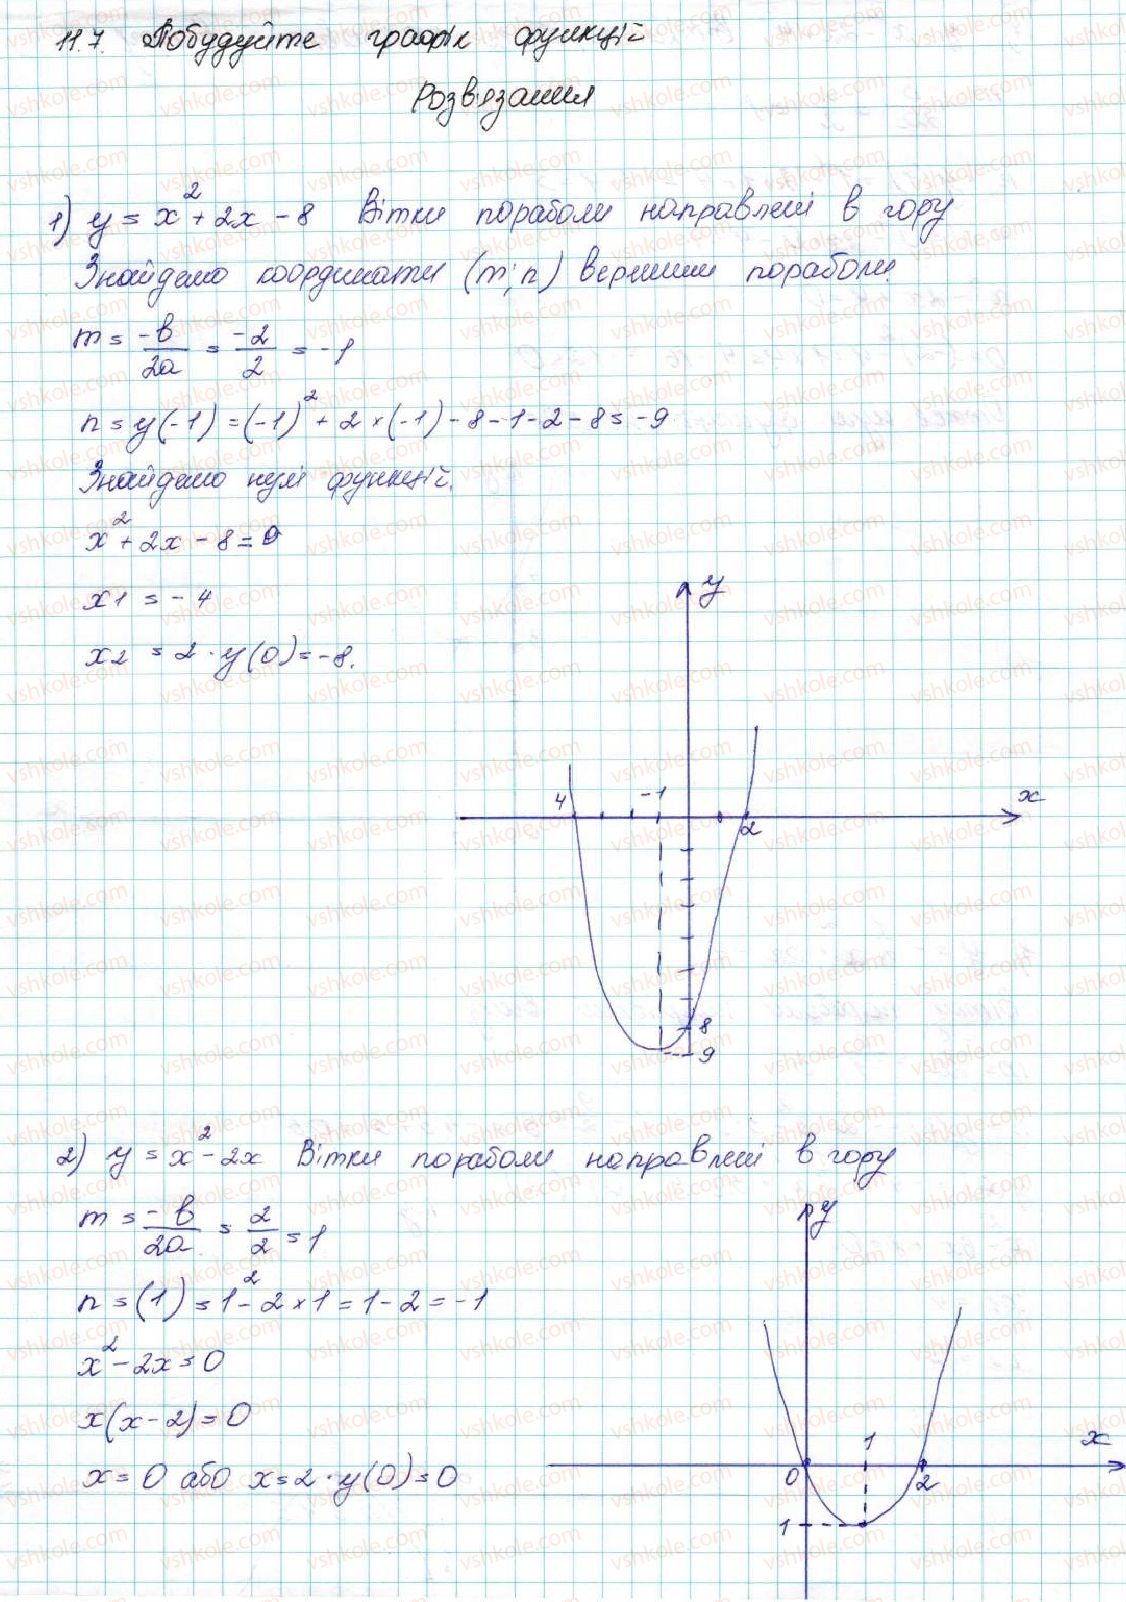 11.7. Побудуйте графік функцій
Розв'язання
1) y = x² + 2x - 8 Вітки параболи направлені в гору
Знайдемо координати (m; n) вершини параболи.
m = -b/2a = -2/2 = -1
n = y(-1) = (-1)² + 2 × (-1) - 8 - 1 - 2 - 8 = -9
Знайдемо нулі функцій.
x² + 2x - 8 = 0
x1 = -4
x2 = 2 · y(0) = -8.
y
4 -1 x
2
8
9
2) y = x² - 2x Вітки параболи направлені в гору
m = -b/2a = 2/2 = 1
n = (1) = 1² - 2 × 1 = 1 - 2 = -1
x² - 2x = 0
x(x - 2) = 0
x = 0 або x = 2 · y(0) = 0
y
1 x
0 2
1
vshkole.com